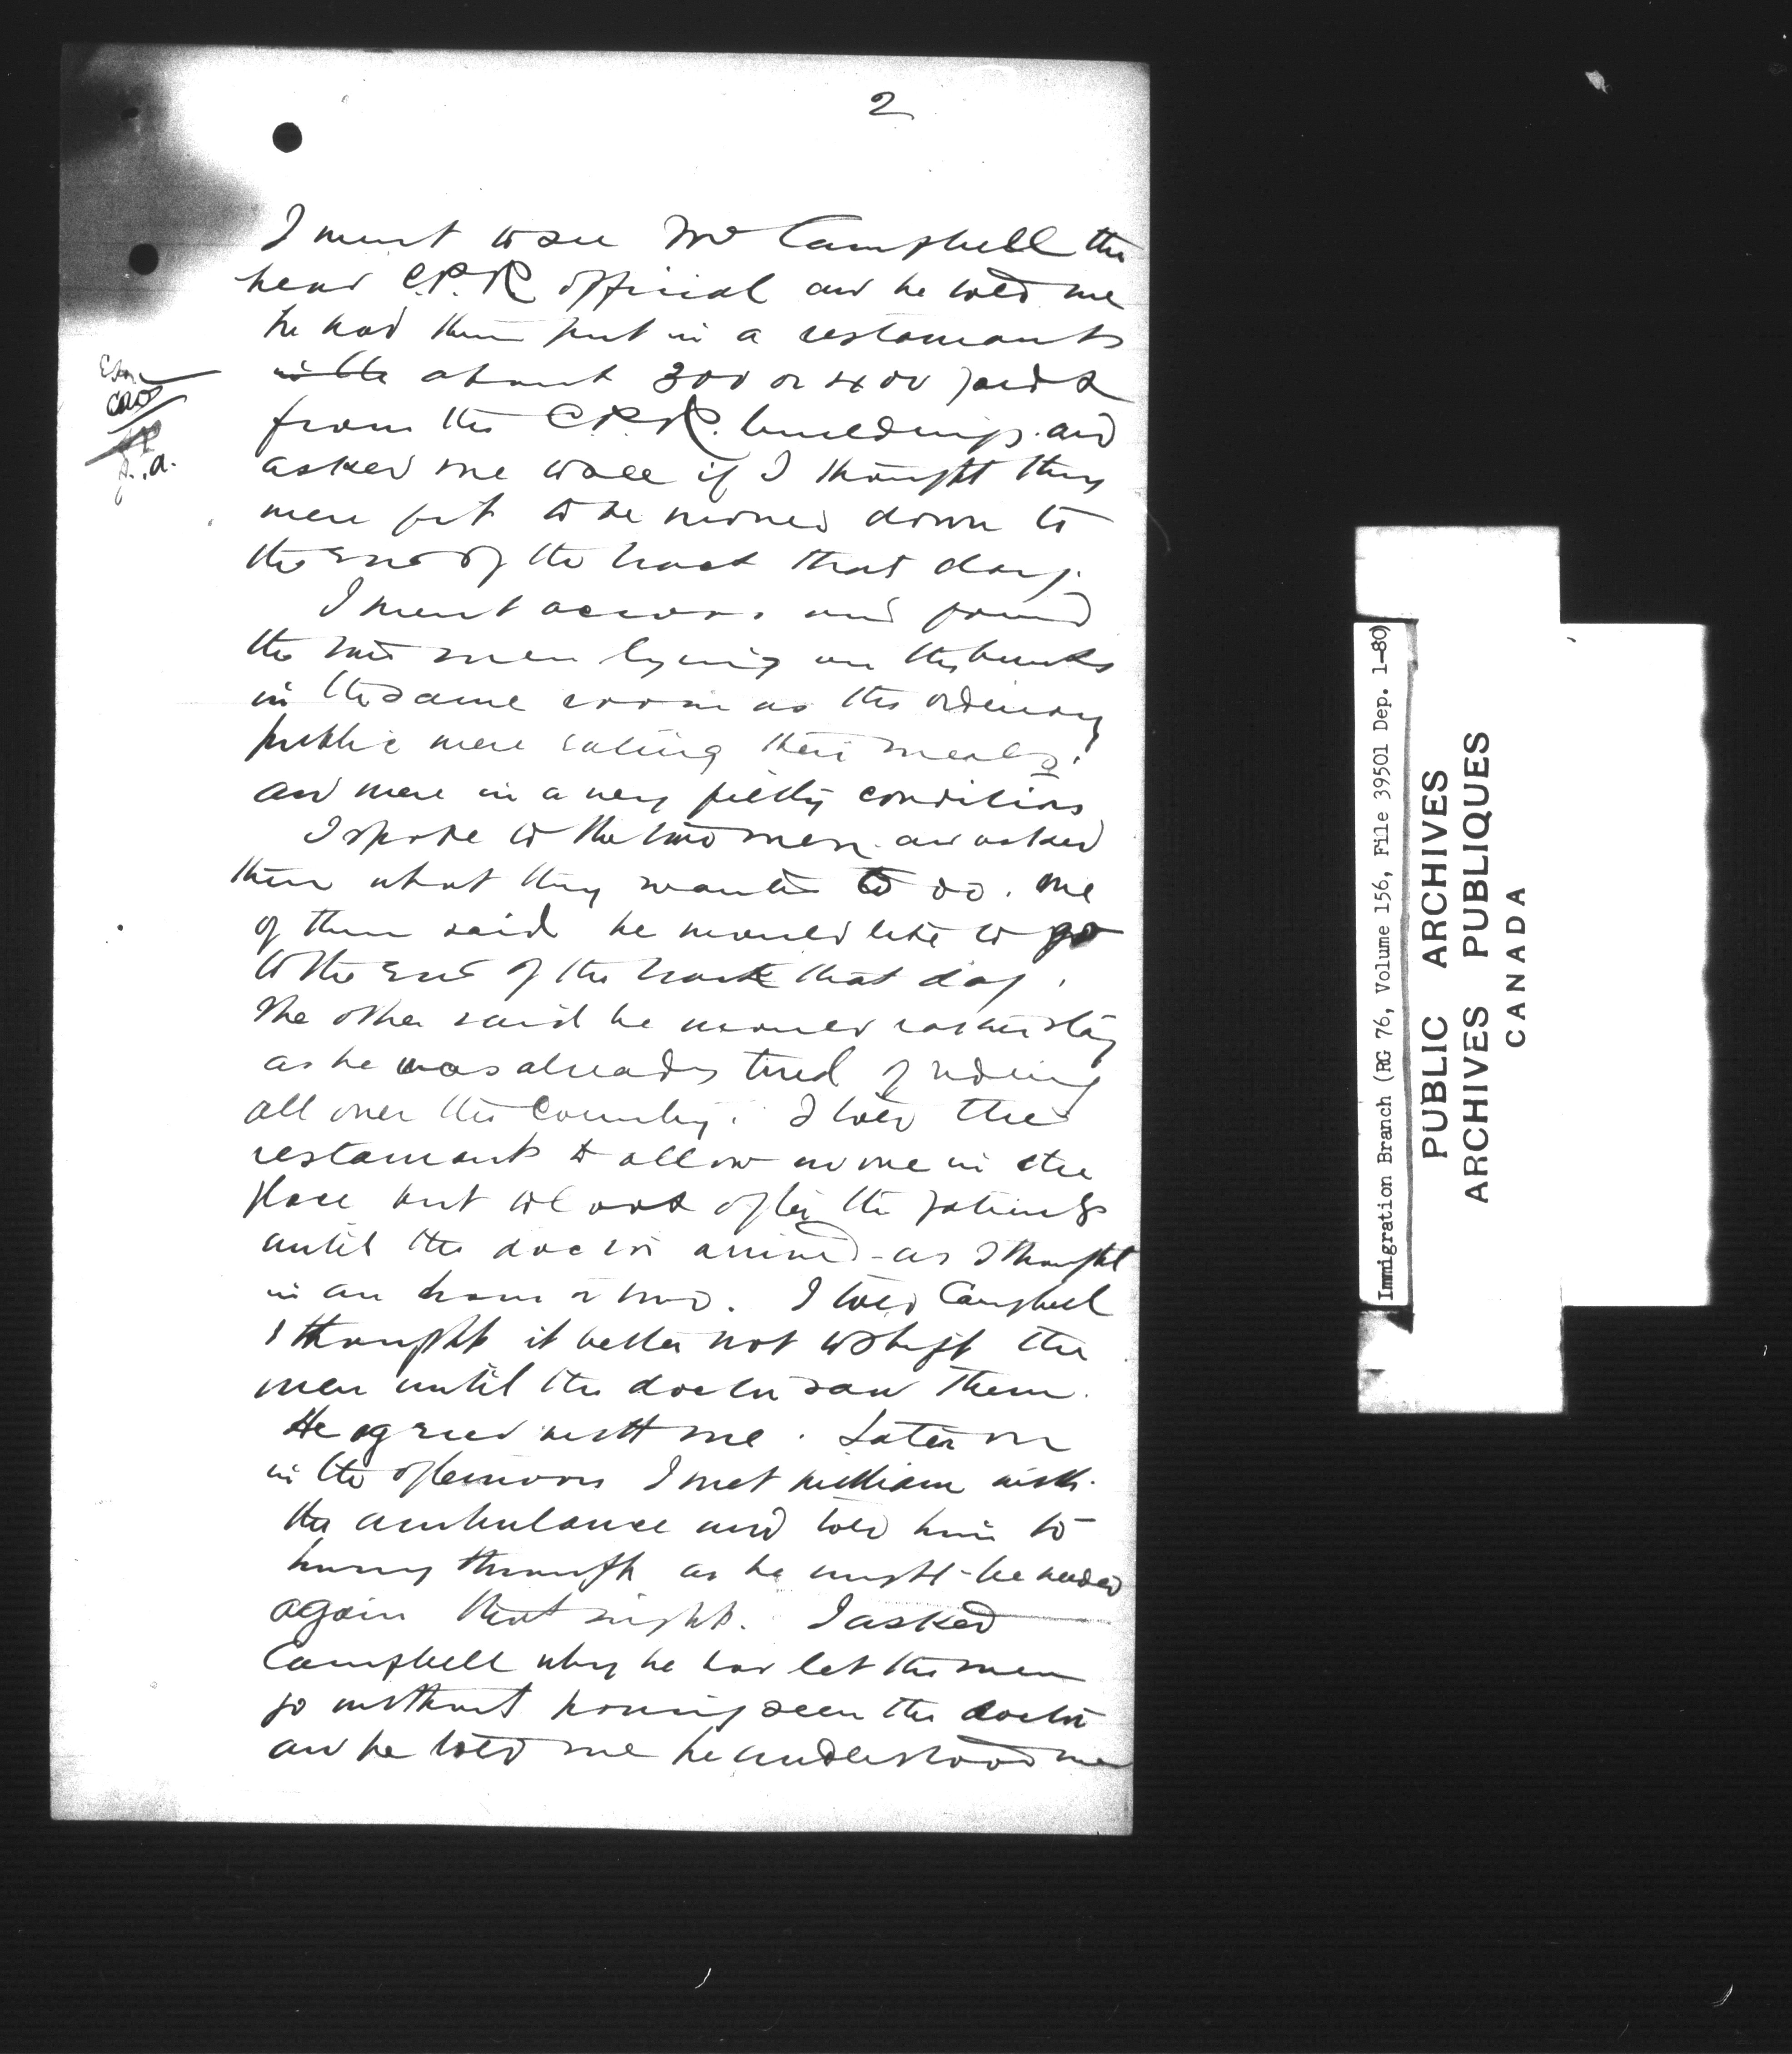 2
I went to see Mr Campbell the
head C.P.R. official and he told me
he had them put in a restaurants
in the about 300 or 400 yards
from the C.P.R. buildings. and
asked me to see if I thought they
were fit to be moved down to
the End of the track that day.
I went across and found
the two men lying on the bunks
in the same room as the ordinary
public were eating their meals.
and were in a very filthy condition
I spoke to the two men and asked
them what they wanted to do. one
of them said he would like to go
to the End of the track that day.
The other said he would rather stay
as he was already tired of riding
all over the country. I told the
restaurants to allow no one in the
place but to look after the patients
until the doctor arrived - as I thought
in an hour or two. I told Campbell
I thought it better not to shift the
men until the doctor saw them.
He agreed with me. Later on
in the afternoon I met William with
the ambulance and told him to
hurry through as he might be needed
again that night. I asked
Campbell why he had let the men
go without having seen the doctor
and he told me he understood me
J.A.
Immigration Branch (RG 76, Volume 156, File 39501 Dep. 1-80)
PUBLIC ARCHIVES
ARCHIVES PUBLIQUES
CANADA